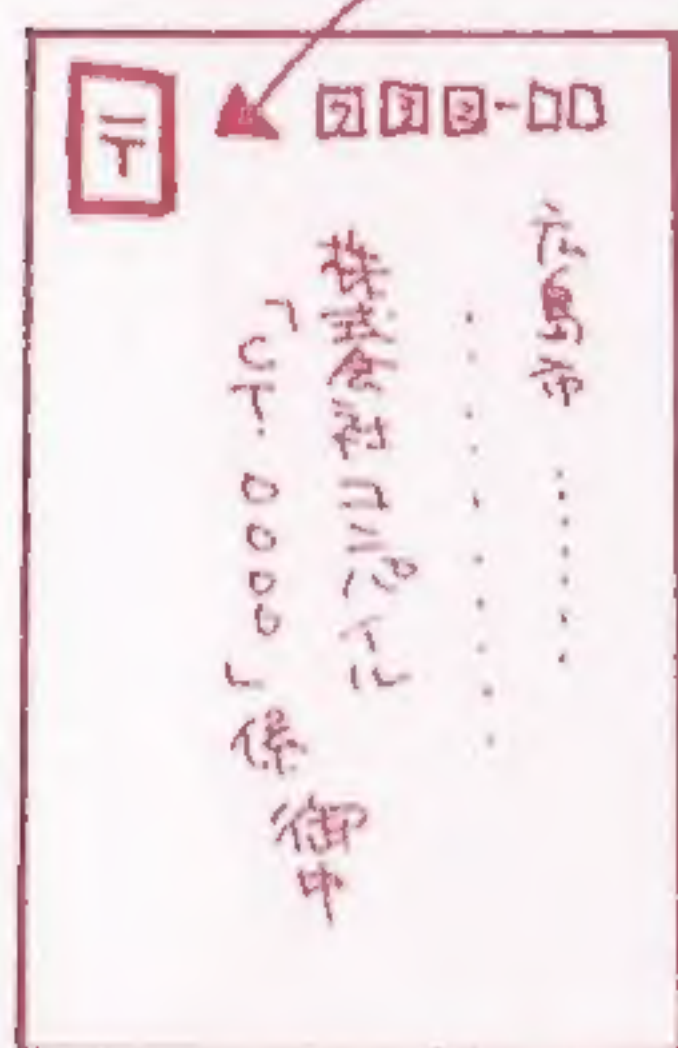 〒 732-□□
広島市
株式会社コンパイル
「 ○○○○」係
御中